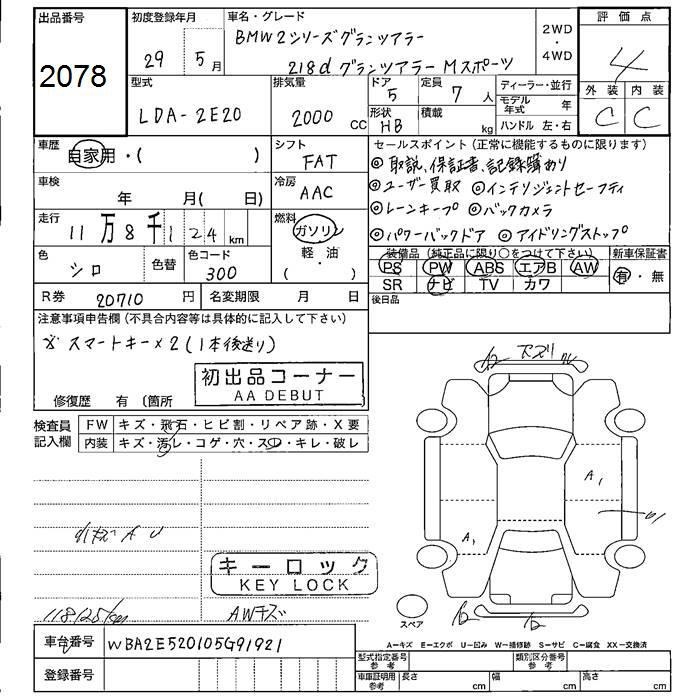 出品番号
2078
初度登録年月
29年 5月
車名・グレード
BMW2シリーズグランツアラー
218d グランツアラー Mスポーツ
2WD
・
4WD
評価点
4
外装 内装
C C
型式
LDA-2E20
排気量
2000 cc
ドア
5
定員
7人
形状
HB
積載
kg
ディーラー・並行
モデル年式 年
ハンドル 左・右
車歴
自家用・( )
シフト
FAT
車検
年 月( 日)
冷房
AAC
走行
11万8千124km
燃料
ガソリン
軽油
・
( )
色
シロ
色替
色コード
300
R券 20710円
名変期限 月 日
セールスポイント(正常に機能するものに限ります)
◎取説、保証書、記録簿あり
◎ユーザー買取 ◎インテリジェントセーフティ
◎レーンキープ ◎バックカメラ
◎パワーバックドア ◎アイドリングストップ
装備品(純正品に限り○をつけて下さい)
新車保証書
PS PW ABS エアB AW
SR ナビ TV カワ
有・無
後日品
注意事項申告欄(不具合内容等は具体的に記入して下さい)
スマートキー×2(1本後送り)
初出品コーナー
AA DEBUT
修復歴 有(箇所
検査員記入欄
FW キズ・飛石・ヒビ割・リペア跡・X要
内装 キズ・汚レ・コゲ・穴・スレ・キレ・破レ
小キズ A U
キーロック
KEY LOCK
118125km
AWキズ
A1
A1
U1
スペア
A-キズ E-エクボ U-凹み W-補修跡 S-サビ C-腐食 XX-交換済
車台番号 WBA2E520105G91921
登録番号
型式指定番号 参考
類別区分番号 参考
車庫証明用 参考
長さ cm
幅 cm
高さ cm